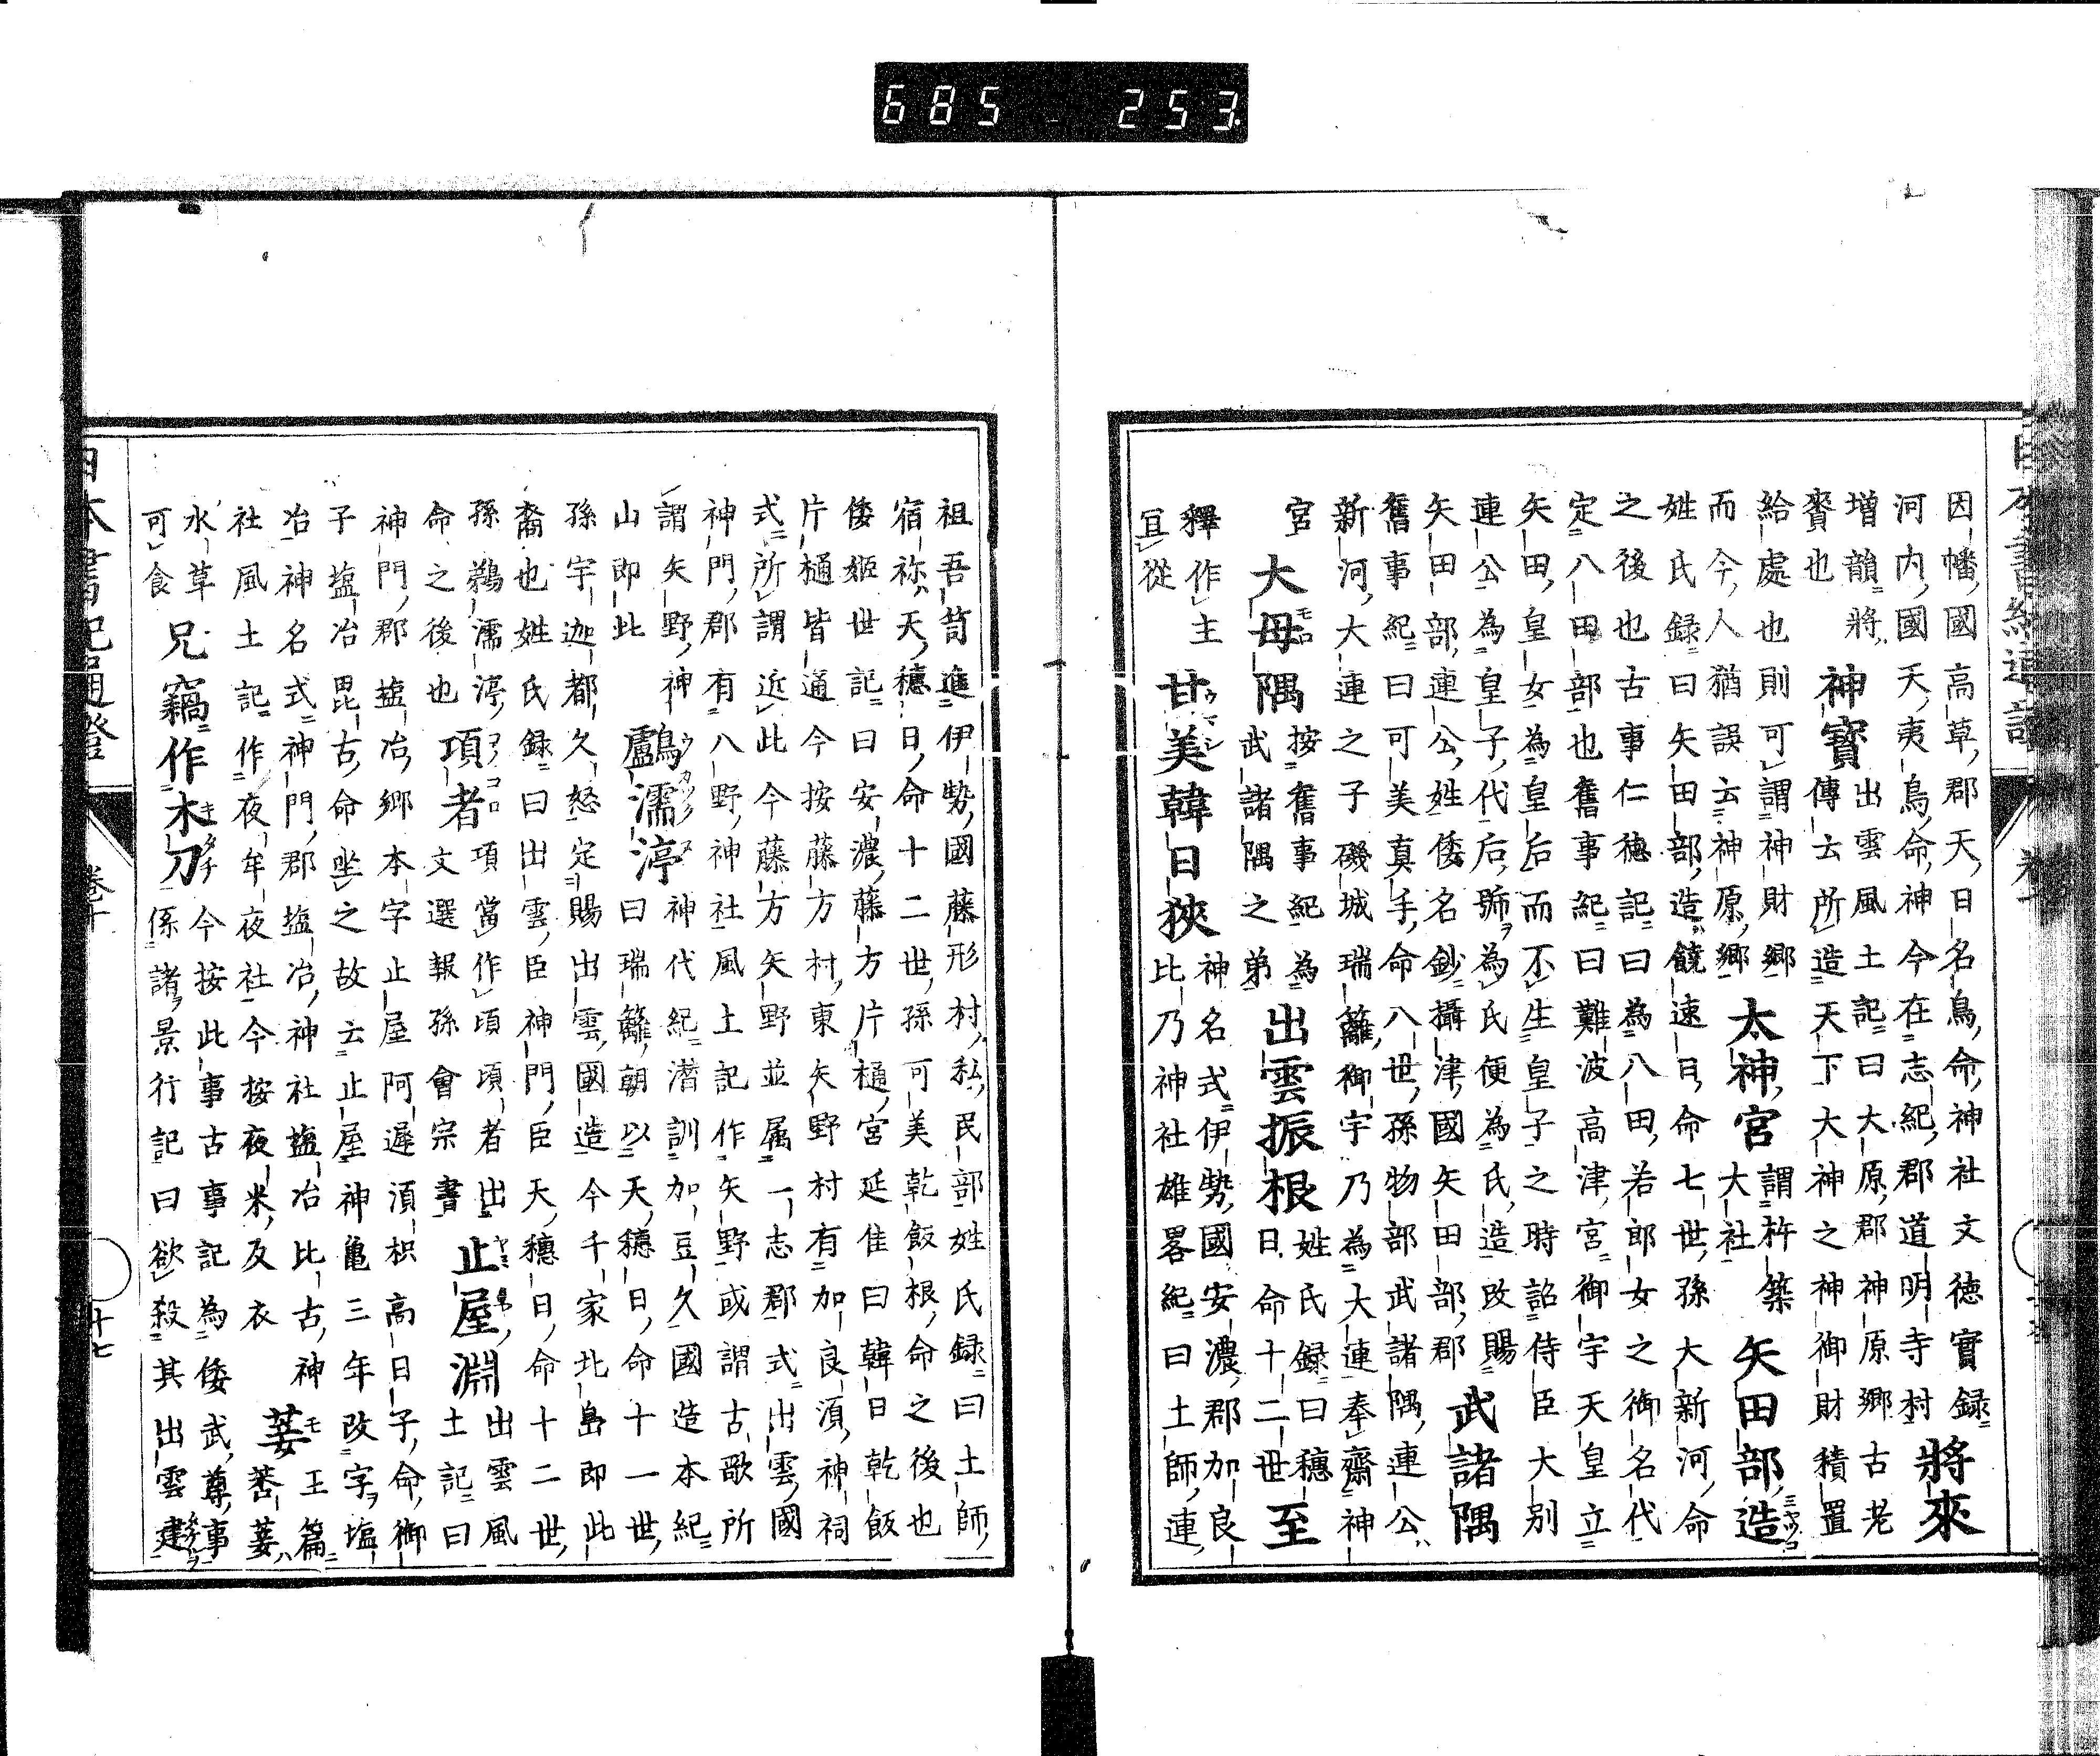 685 253
因幡國高草郡天日名鳥命神社文徳實録
河内國天夷鳥命神今在志紀郡道明寺村 將來
增韻將
賚也 神寳 出雲風土記曰大原郡神原郷古老
傳云所造天下大神之神御財積置
給處也則可謂神財郷
而今人猶誤云神原郷 太神宮 謂杵築
大社 矢田部造
姓氏録曰矢田部造饒速日命七世孫大新河命
之後也古事仁徳記曰為八田若郎女之御名代
定八田部也舊事紀曰難波高津宮御宇天皇立
矢田皇女為皇后而不生皇子之時詔侍臣大別
連公為皇子代后號為氏便為氏造改賜
矢田部連公姓倭名鈔攝津國矢田部郡 武諸隅
舊事紀曰可美真手命八世孫物部武諸隅連公
新河大連之子磯城瑞籬御宇乃為大連奉齋神
宮 大母隅 按舊事紀為
武諸隅之弟 出雲振根 姓氏録曰穗
日命十二世 至
釋作主
宜從 甘美韓日狹 神名式伊勢國安濃郡加良
比乃神社雄畧紀曰土師連
祖吾笥進伊勢國藤形村私民部姓氏録曰土師
宿祢天穗日命十二世孫可美乾飯根命之後也
倭姬世記曰安濃藤方片樋宮延佳曰韓日乾飯
片樋皆通今按藤方村東矢野村有加良湏神祠
式所謂近此今藤方矢野並属一志郡式出雲國
神門郡有八野神社風土記作矢野或謂古歌所
謂矢野神
山即此 鸕濡渟 神代紀潛訓加豆久國造本紀
曰瑞籬朝以天穗日命十一世
孫宇迦都久怒定賜出雲國造今千家北島即此
裔也姓氏録曰出雲臣神門臣天穗日命十二世
孫鵜濡渟
命之後也 項者 項當作頃頃者出
文選報孫會宗書 止屋淵 出雲風
土記曰
神門郡塩冶郷本字止屋阿遲湏枳高日子命御
子塩冶毘古命坐之故云止屋神亀三年改字塩
冶神名式神門郡塩冶神社塩冶比古神
社風土記作夜牟夜社今按夜米反衣 萎 玉篇
菨萎
水草
可食 兄竊作木刀 今按此事古事記為倭武尊事
係諸景行記曰欲殺其出雲建
日本書紀通證 卷十 十七